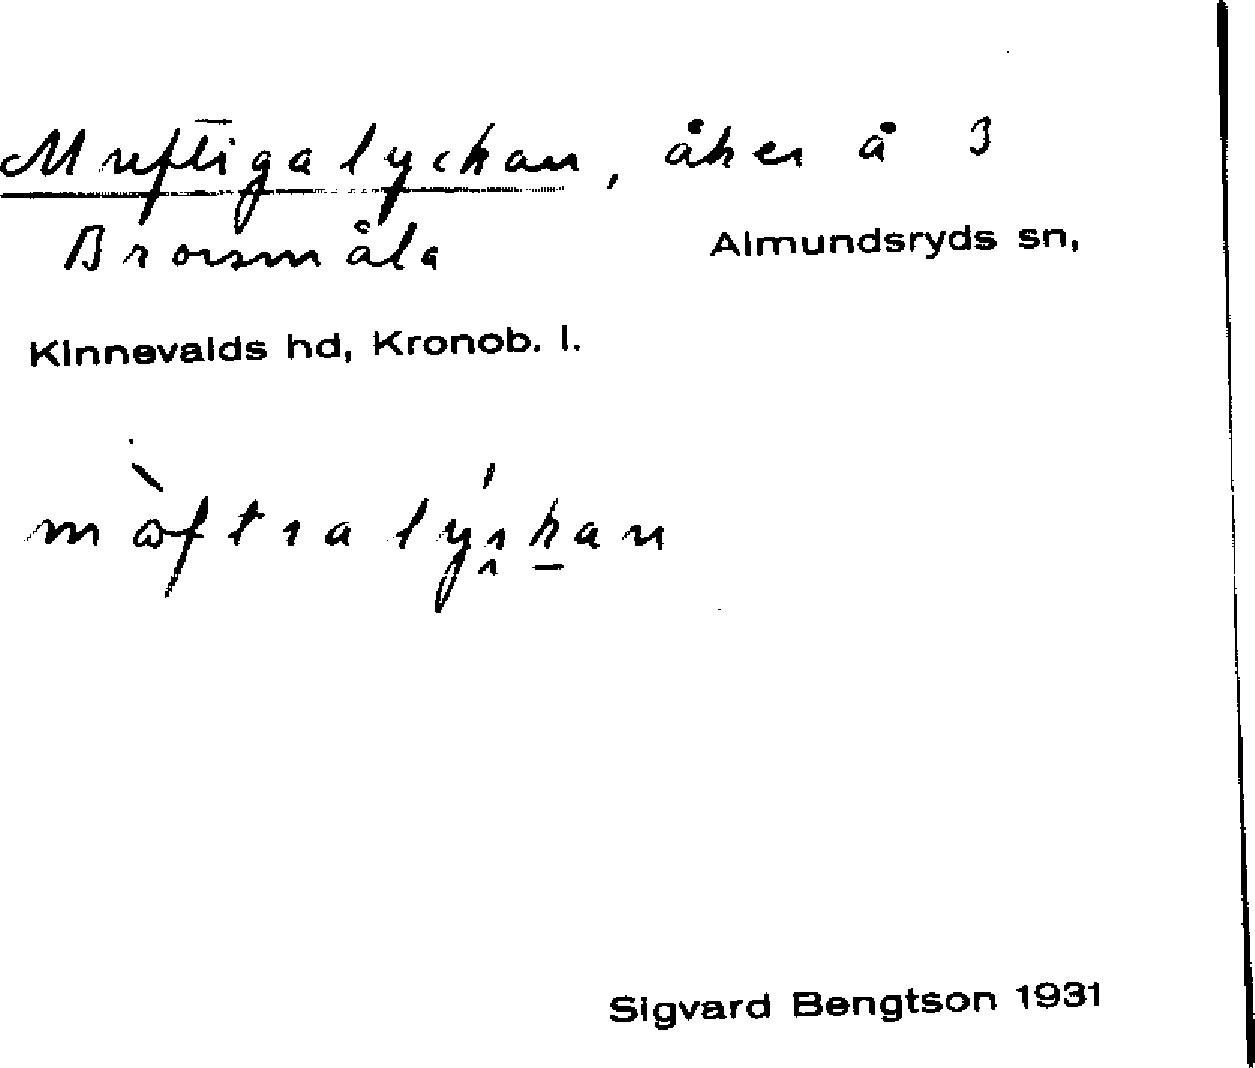 Muftigalyckan, åker å 3
Brorsmåla Almundsryds sn,
Kinnevalds hd, Kronob. l.
Sigvard Bengtson 1931